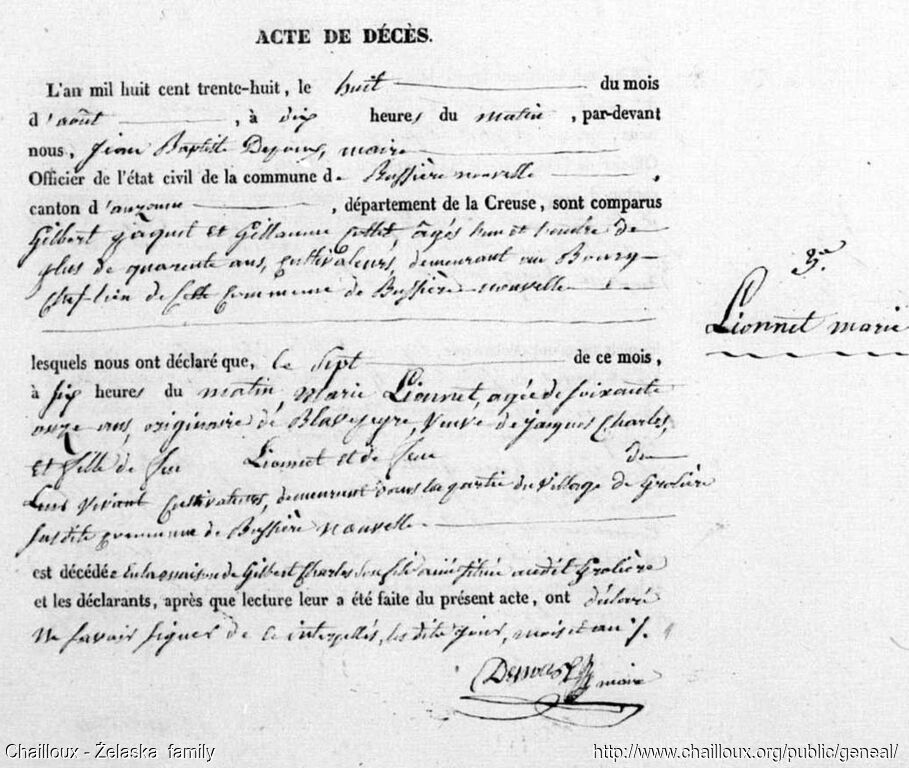 ACTE DE DÉCÈS.
L'an mil huit cent trente-huit, le huit du mois
d'août, à dix heures du matin, par-devant
nous, Jean Baptiste maire
Officier de l'état civil de la commune de Bussière nouvelle,
canton d'auzance, département de la Creuse, sont comparus
Gilbert Jaquet et Gillaume Cottet, âgés l'un et l'autre de
plus de quarente ans, cultivateurs, demeurant au Bourg
Chef lieu de cette Commune de Bussière nouvelle
3e.
Lionnet marie
lesquels nous ont déclaré que, le sept de ce mois,
à six heures du matin, Marie Lionnet, agée de soixante
onze ans, originaire de Veuve de jacques Charles,
et fille de feu Lionnet et de feue de
Leur vivant Cultivateurs, demeurant dans la partie du village de Grolière
susdite commune de Bussière nouvelle
est décédée en la maison de Gilbert Charles son fils ainé située audit Grolière
et les déclarants, après que lecture leur a été faite du présent acte, ont déclaré
ne savoir signer de ce interpellés, les dits jour, mois et an %.
maire
Chailloux - Żelaska family
http://www.chailloux.org/public/geneal/